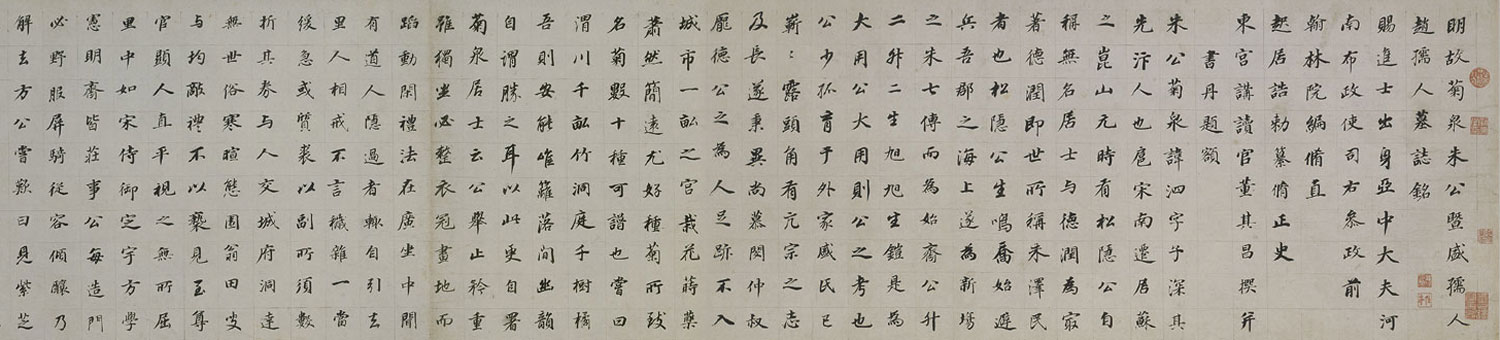 明故菊泉朱公暨盛孺人
趙孺人墓誌銘
賜進士出身亞中大夫河
南布政使司右參政前
翰林院編脩直
起居誥勅纂脩正史
東宮講讀官董其昌撰并
書丹題額
朱公菊泉諱泗字子深其
先汴人也扈宋南遷居蘇
之崑山元時有松隱公自
稱無名居士与德潤為㝡
著德潤即世所稱朱澤民
者也松隱公生鳴喬始避
兵吾郡之海上遂為新場
之朱七傳而為始齋公升
二升二生旭旭生鎧是為
大用公大用則公之考也
公少孤育于外家盛氏已
嶄〻露頭角有亢宗之志
及長遂秉異尚慕閔仲叔
龐德公之為人足跡不入
城市一畝之宮栽花蒔藥
蕭然簡遠尤好種菊所致
名菊數十種可譜也嘗曰
渭川千畝竹洞庭千樹橘
吾則安能唯籬落間幽韻
自謂勝之耳以此更自署
菊泉居士云公舉止矜重
雖獨坐必整衣冠畫地而
蹈動閑禮法在廣坐中聞
有道人隱過者輒自引去
里人相戒不言穢雜一當
緩急或質裘以副所須數
折其券与人交城府洞達
無世俗寒暄態園翁田叟
与均敵禮不以褻見至尊
官顯人直平視之無所屈
里中如宋侍御定宇方學
憲明齋皆莊事公每造門
必野服屏騎從容傾釀乃
解去方公嘗歎曰見紫芝